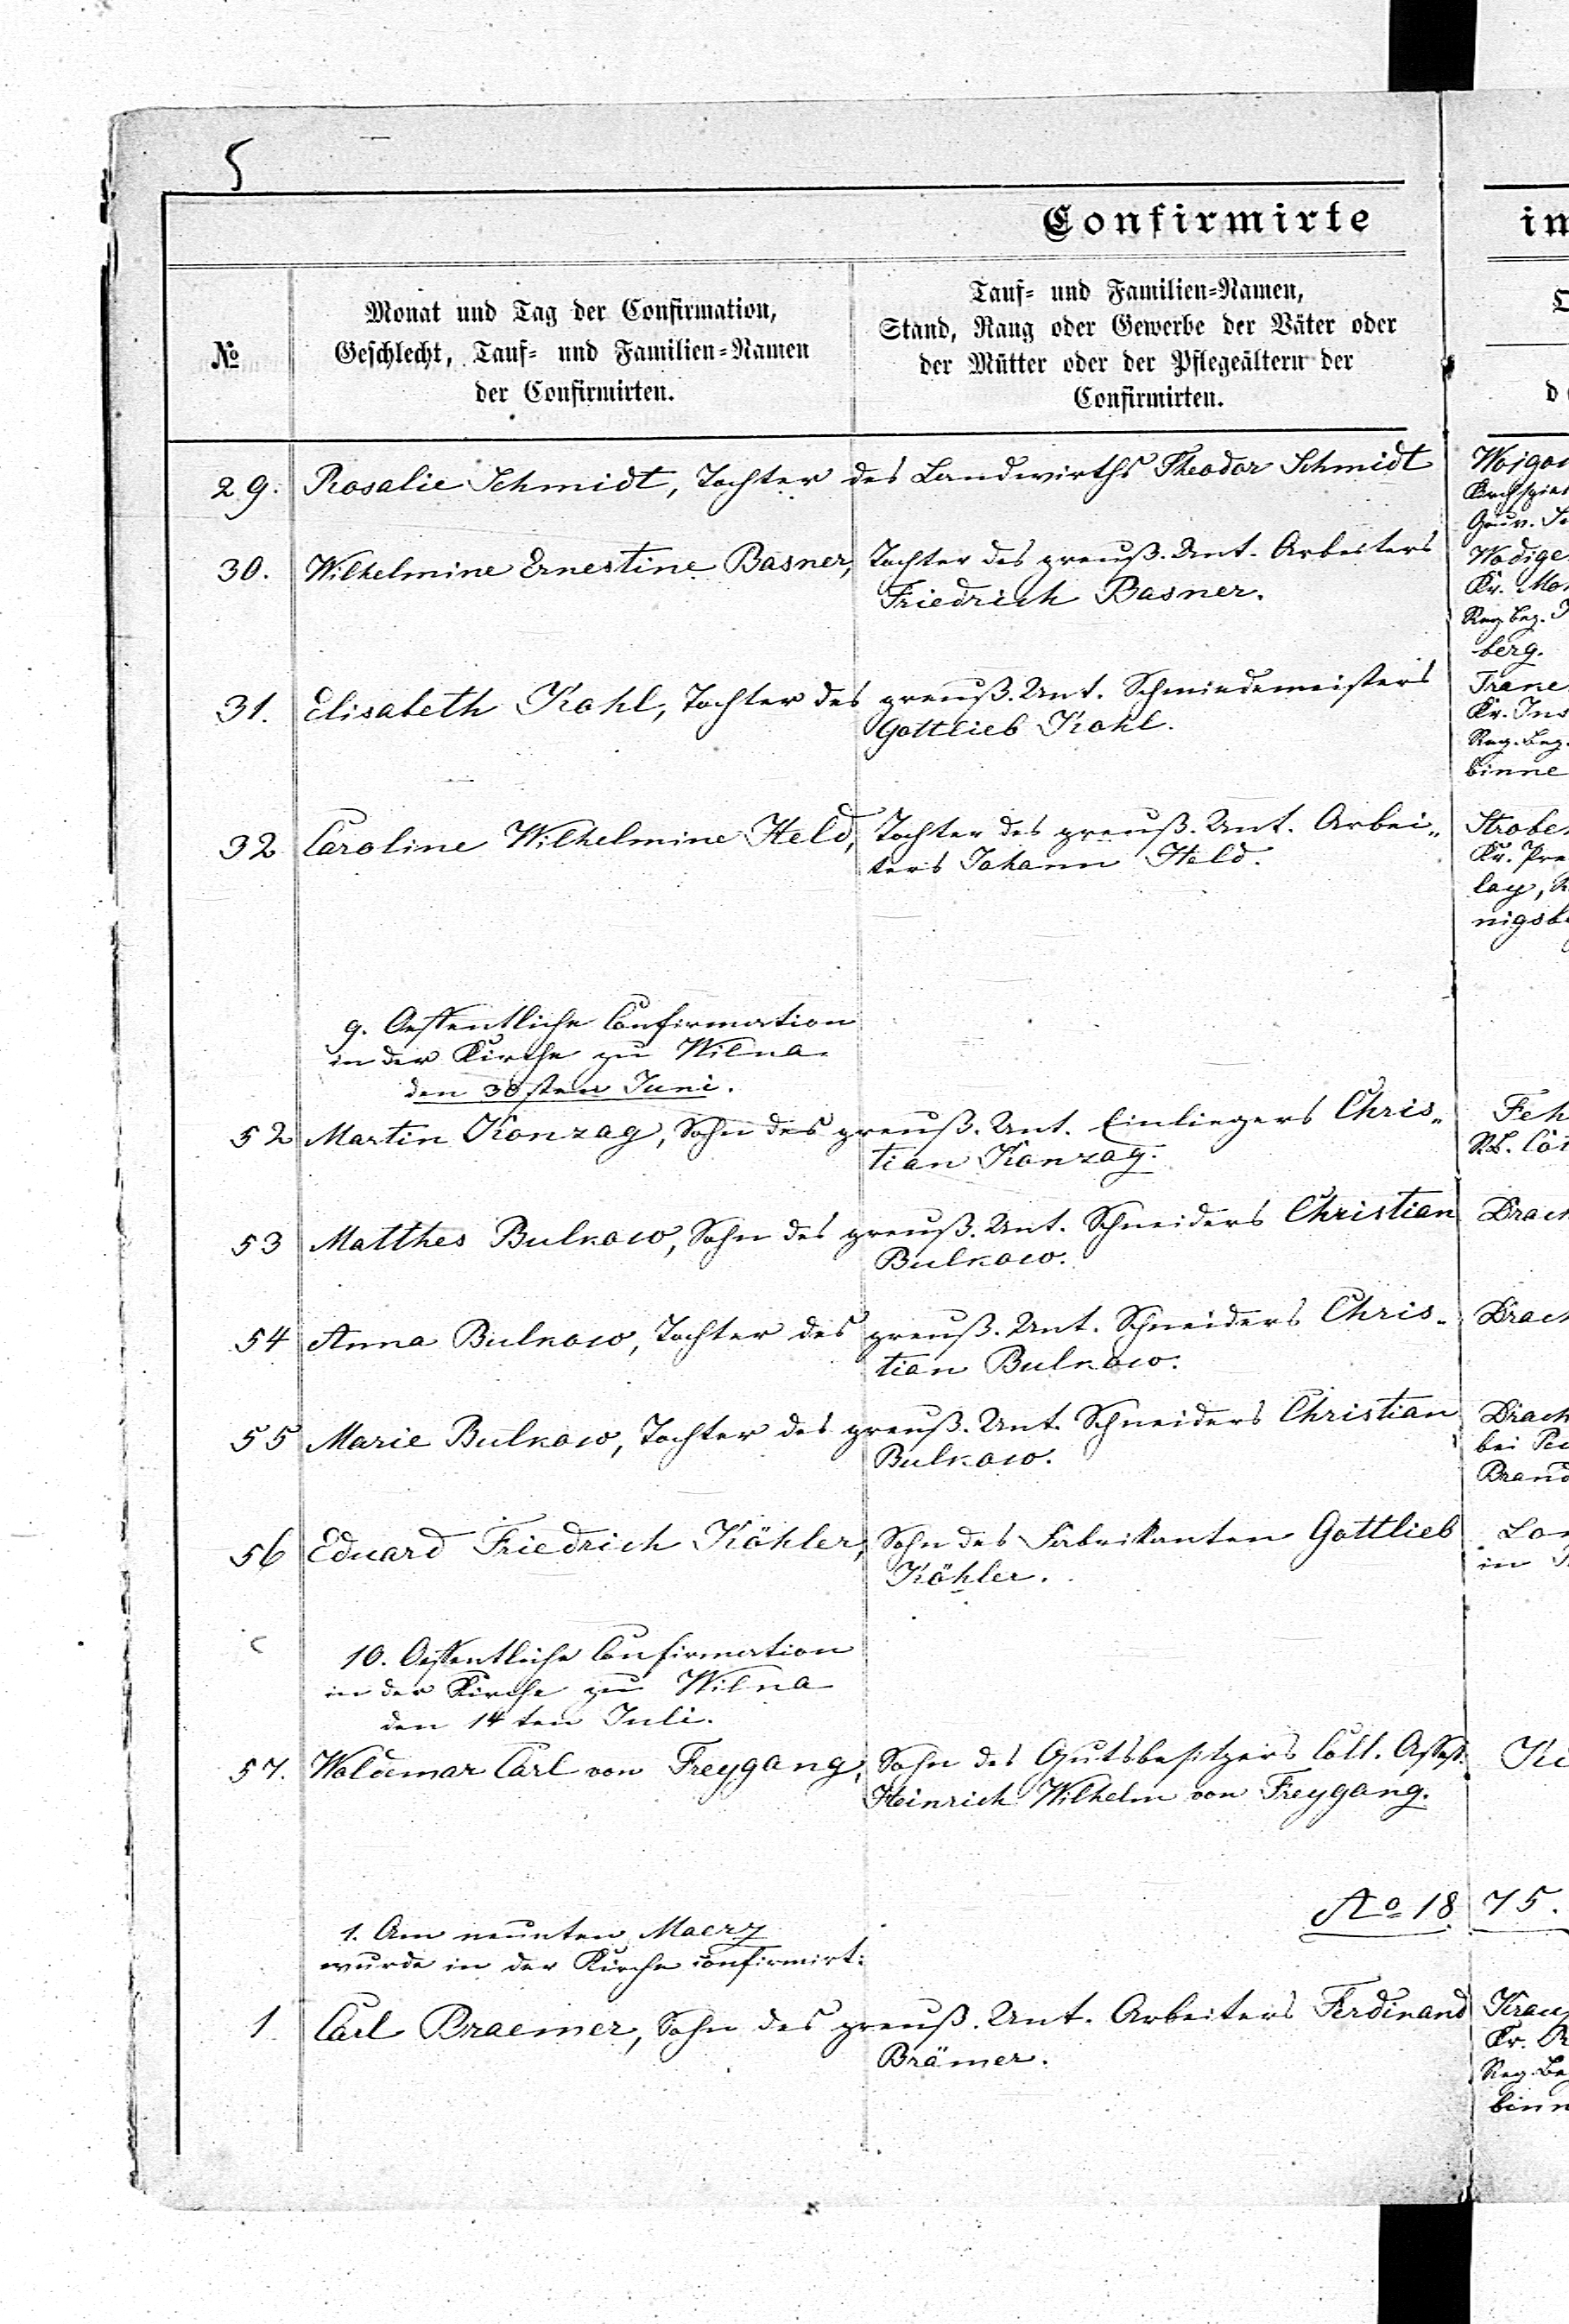 5
Confirmirte
in
№
Monat und Tag der Confirmation,
Geschlecht, Tauf- und Familien-Namen
der Confirmirten.
Tauf- und Familien-Namen,
Stand, Rang oder Gewerbe der Väter oder
der Mütter oder der Pflegeältern der
Confirmirten.
29. Rosalie Schmidt, Tochter des Landwirths Theodor Schmidt
30. Wilhelmine Ernestine Basner, Tochter des preuß. Unt. Arbeiters
Friedrich Basner.
Kr.
Reg. Bez.
berg.
31. Elisabeth Kohl, Tochter des preuß. Unt. Schmiedemeisters
Gottlieb Kohl.
Kr. Ins
Reg. Bez.
binne
32 Caroline Wilhelmine Held, Tochter des preuß. Unt. Arbei„
ters Johann Held.
Kr. Pre
lay,
nigsb
9. Oeffentliche Confirmation
in der Kirche zu Wilna
den 30sten Juni.
52 Martin Konzag, Sohn des preuß. Unt. Einliegers Chris„
tian Konzag.
Feh
53 Matthes Bulkow, Sohn des preuß. Unt. Schneiders Christian
Bulkow.
Drach
54 Anna Bulkow, Tochter des preuß. Unt. Schneiders Chris„
tian Bulkow.
Drach
55 Marie Bulkow, Tochter des preuß. Unt. Schneiders Christian
Bulkow.
Drach
bei
Brand
56 Eduard Friedrich Köhler, Sohn des Fabrikanten Gottlieb
Köhler.
in
10. Oeffentliche Confirmation
in der Kirche zu Wilna
den 14ten Juli.
57. Woldemar Carl von Freygang, Sohn des Gutsbesitzers Coll. Assess.
Heinrich Wilhelm von Freygang.
Ki
Ao 18 75.
1. Am neunten Maerz
wurde in der Kirche confirmirt:
1 Carl Braemer, Sohn des preuß. Unt. Arbeiters Ferdinand
Brämer.
Kr.
Reg. Be
binn